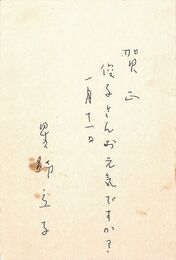 賀正
俊子さんお元気ですか？
一月十一日
星野立子